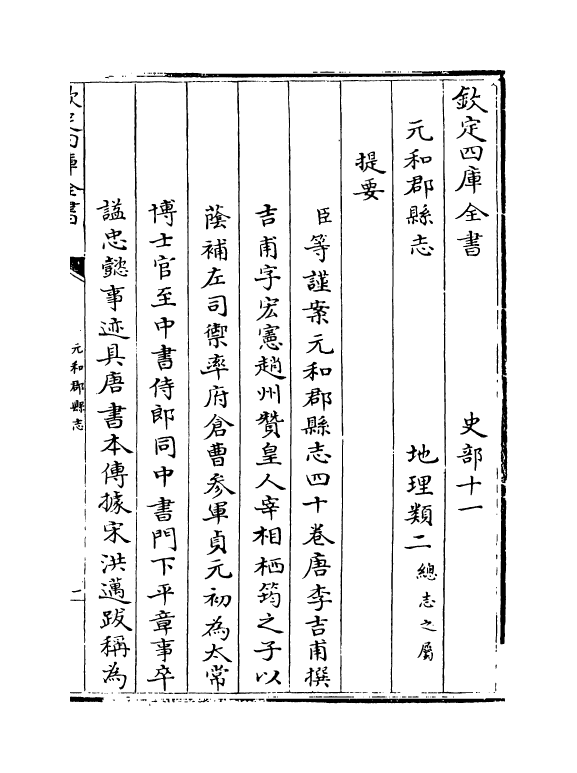 欽定四庫全書 史部十一
元和郡縣志 地理類二 總志之屬
提要
臣等謹案元和郡縣志四十卷唐李吉甫撰
吉甫字宏憲趙州贊皇人宰相栖筠之子以
蔭補左司禦率府倉曹參軍貞元初為太常
博士官至中書侍郎同中書門下平章事卒
謚忠懿事迹具唐書本傳據宋洪邁跋稱為
欽定四庫全書
元和郡縣志